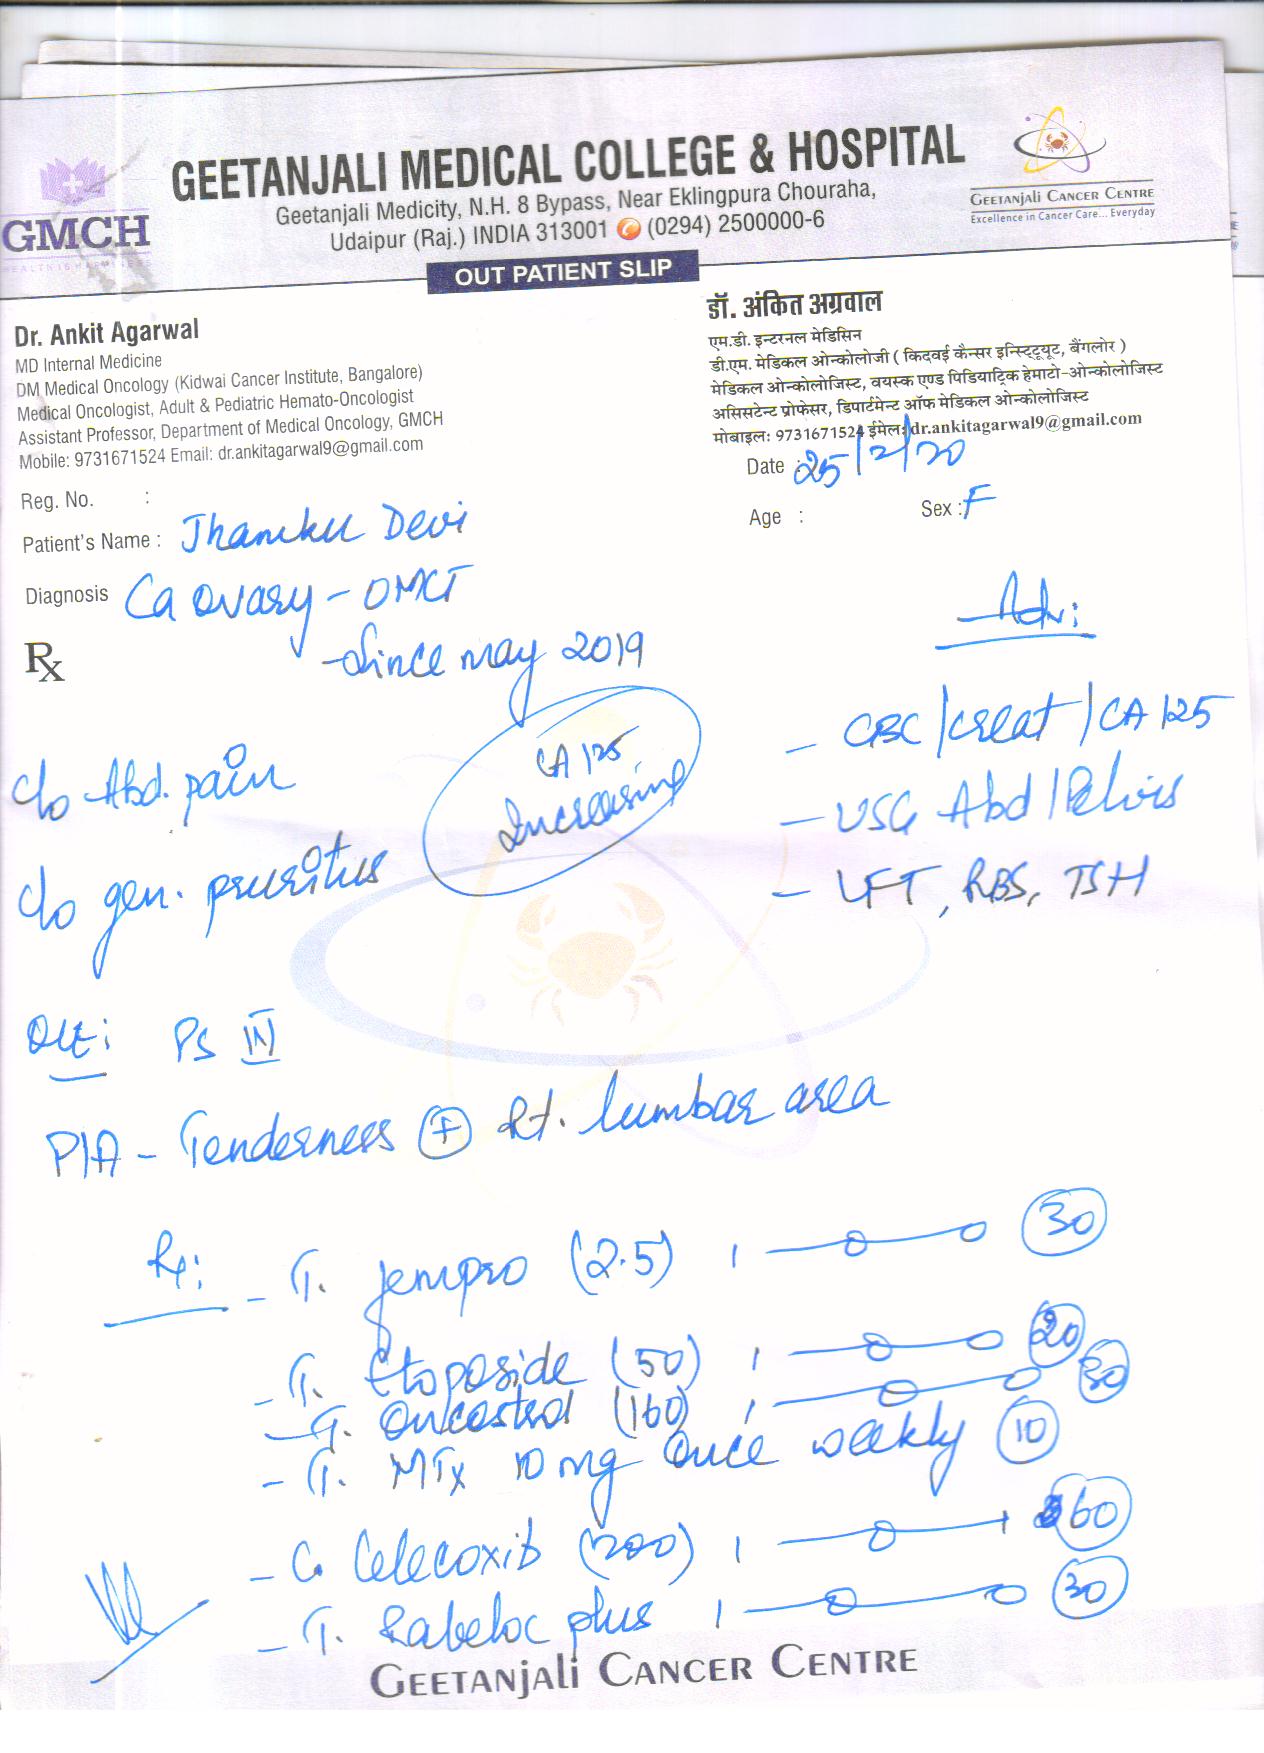 GEETANJALI MEDICAL COLLEGE & HOSPITAL
Geetanjali Medicity, N.H. 8 Bypass, Near Eklingpura Chouraha,
Udaipur (Raj.) INDIA 313001 (0294) 2500000-6
GMCH
HEALTH IS HAPPINESS
GEETANJALI CANCER CENTRE
Excellence in Cancer Care... Everyday
OUT PATIENT SLIP
Dr. Ankit Agarwal
MD Internal Medicine
DM Medical Oncology (Kidwai Cancer Institute, Bangalore)
Medical Oncologist, Adult & Pediatric Hemato-Oncologist
Assistant Professor, Department of Medical Oncology, GMCH
Mobile: 9731671524 Email: dr.ankitagarwal9@gmail.com
डॉ. अंकित अग्रवाल
एम.डी. इन्टरनल मेडिसिन
डी.एम. मेडिकल ओन्कोलोजी ( किदवई कैन्सर इन्स्टिट्यूट, बैंगलोर )
मेडिकल ओन्कोलोजिस्ट, वयस्क एण्ड पिडियाट्रिक हेमाटो-ओन्कोलोजिस्ट
असिसटेन्ट प्रोफेसर, डिपार्टमेन्ट ऑफ मेडिकल ओन्कोलोजिस्ट
मोबाइल: 9731671524 ईमेल: dr.ankitagarwal9@gmail.com
Date : 25/2/20
Reg. No. :
Age : Sex : F
Patient's Name : Jhamku Devi
Diagnosis Ca Ovary - OMCT
Rx - Since may 2019
CA 125 Increasing
Adv:
- CBC / creat / CA 125
- USG Abd / Pelvis
- LFT, RBS, TSH
c/o Abd. pain
c/o gen. pruritus
O/E: PS
P/A - Tenderness + Rt. lumbar area
Rx:
- T. Jempro (2.5) 1 — 0 — 0 30
- T. Etoposide (50) 1 — 0 — 0 20
- T. (160) 1 — 0 — 0 30
- T. MTx 10 mg Once weekly 10
- C. Celecoxib (200) 1 — 0 — 1 60
- T. Rabeloc plus 1 — 0 — 0 30
GEETANJALI CANCER CENTRE